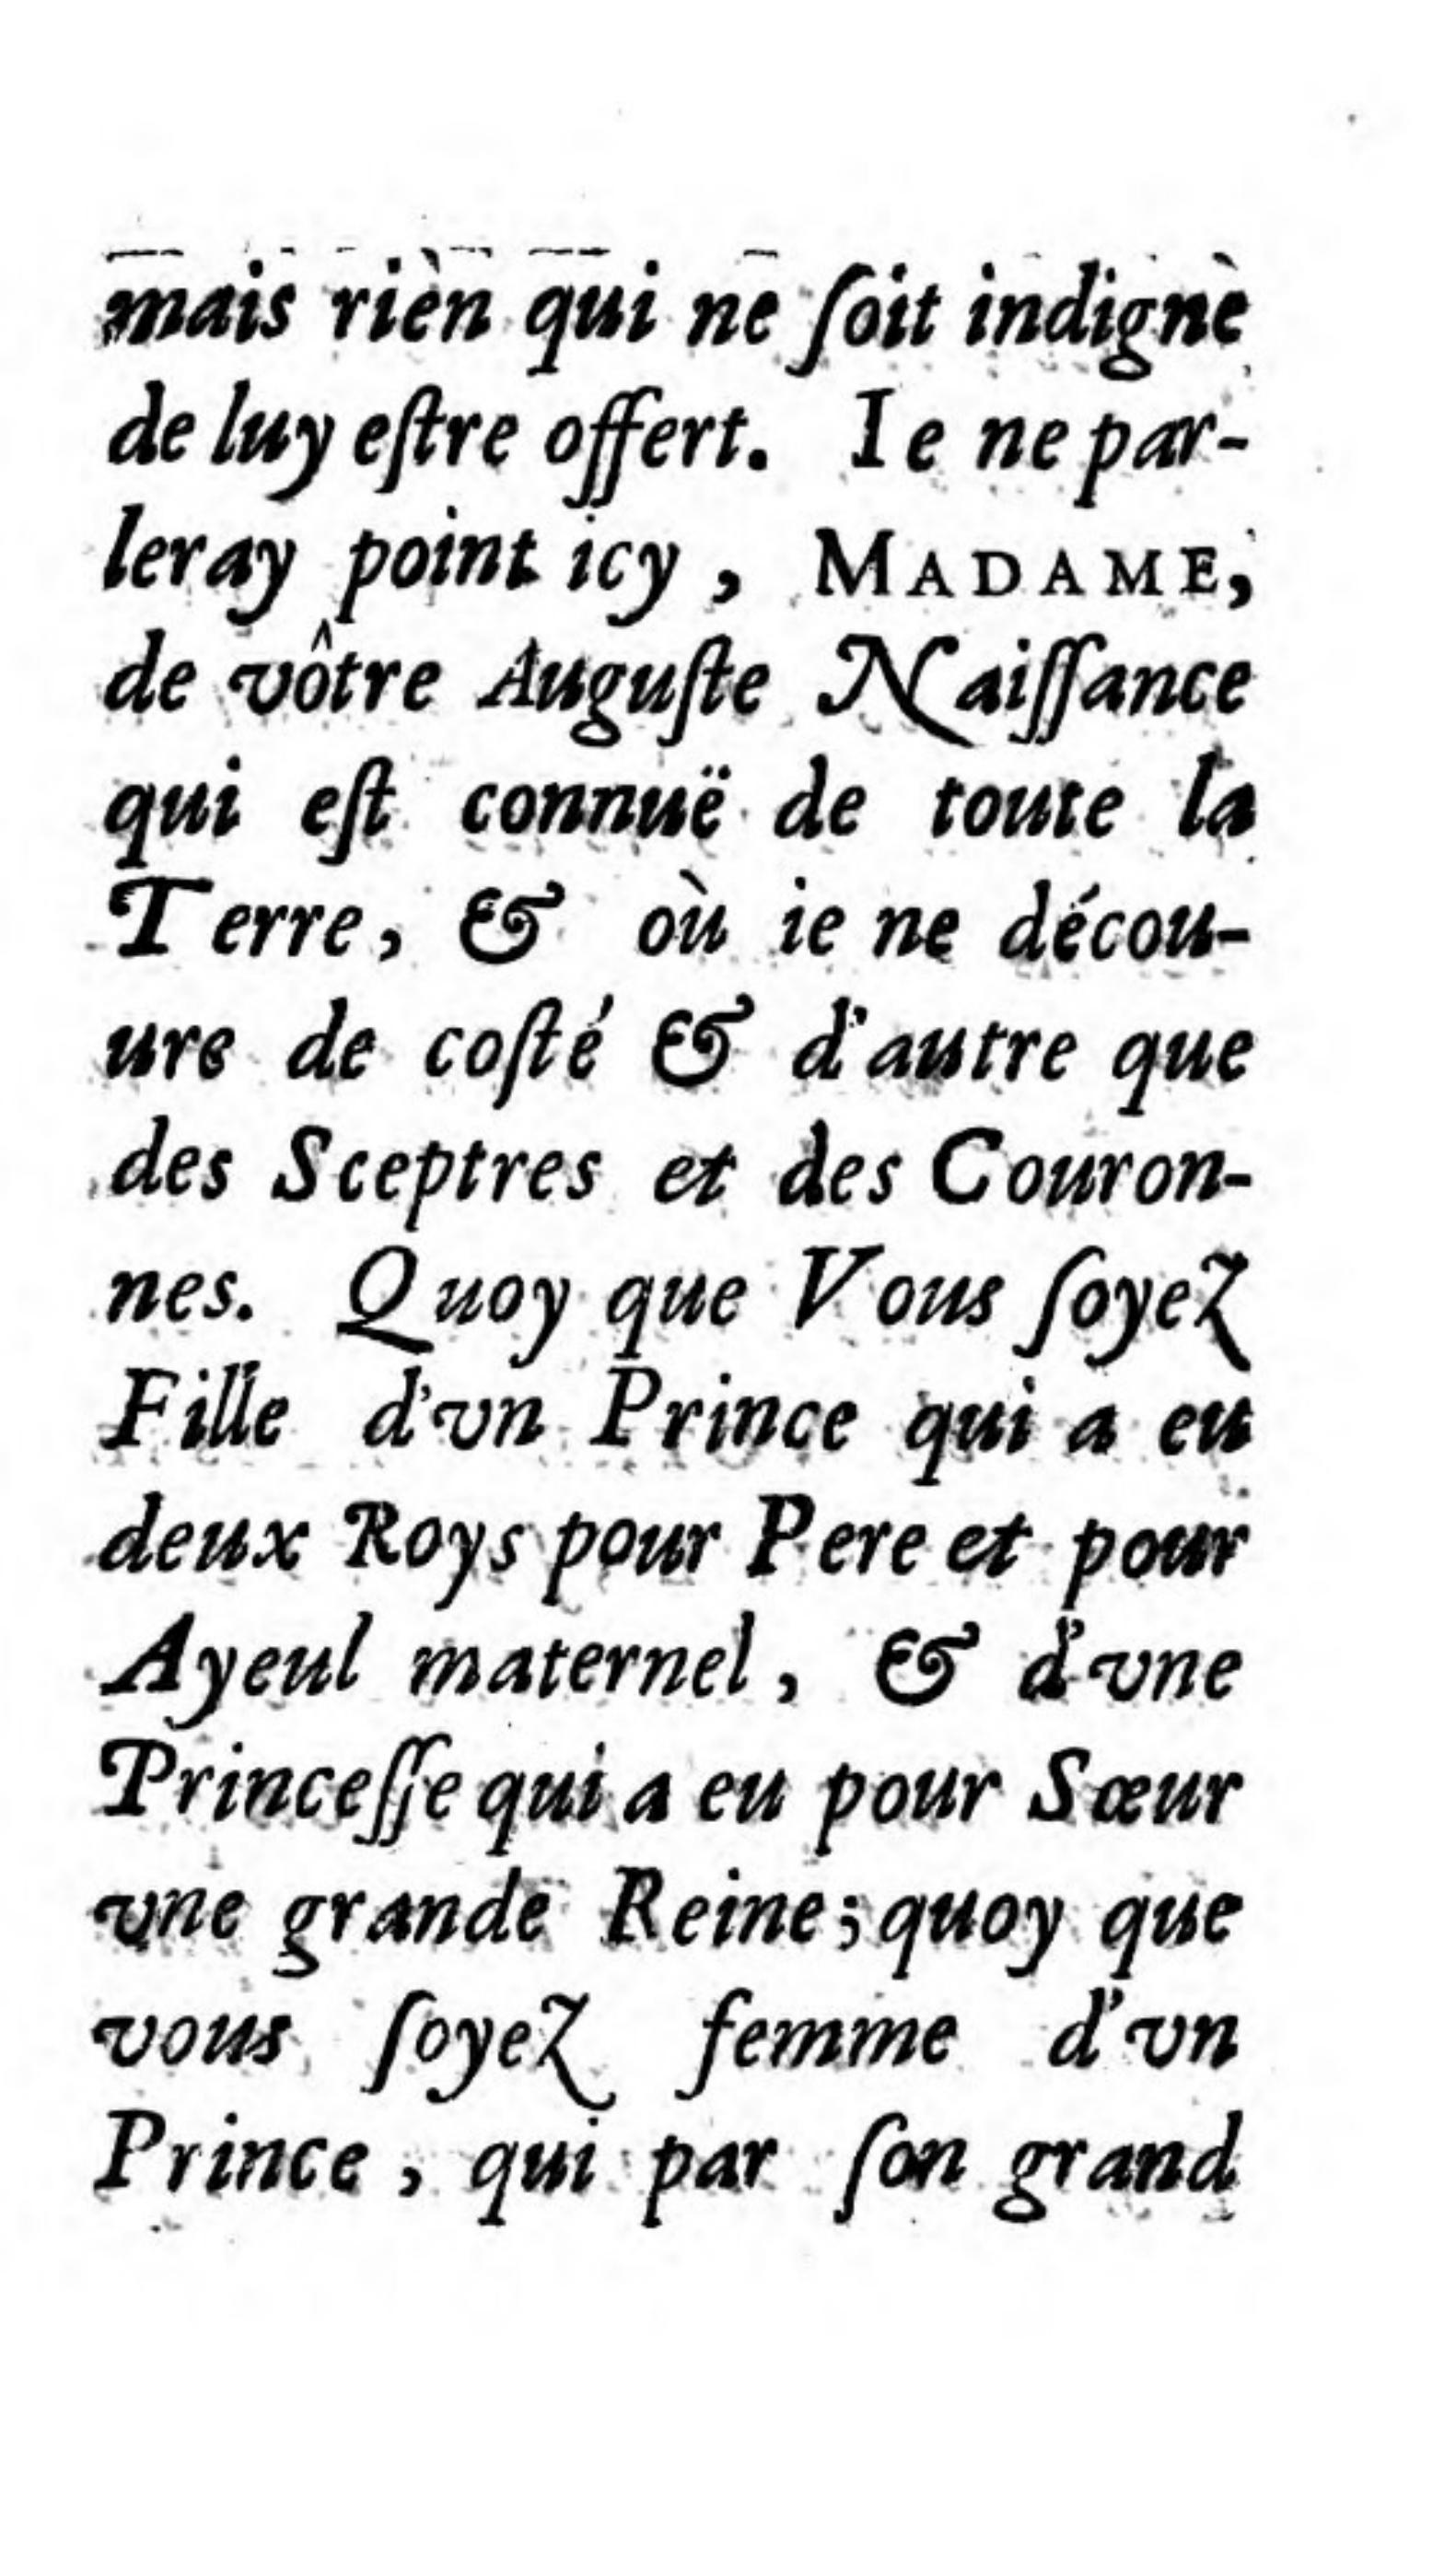 mais rien qui ne ſoit indigne
de luy eſtre offert. Ie ne par-
leray point icy, MADAME,
de vôtre Auguſte Naiſſance
qui eſt connuë de toute la
Terre, & où ie ne décou-
ure de coſté & d'autre que
des Sceptres et des Couron-
nes. Quoy que Vous ſoyez
Fille d'vn Prince qui a eu
deux Roys pour Pere et pour
Ayeul maternel, & d'vne
Princeſſe qui a eu pour Sœur
vne grande Reine; quoy que
vous ſoyez femme d'vn
Prince, qui par ſon grand